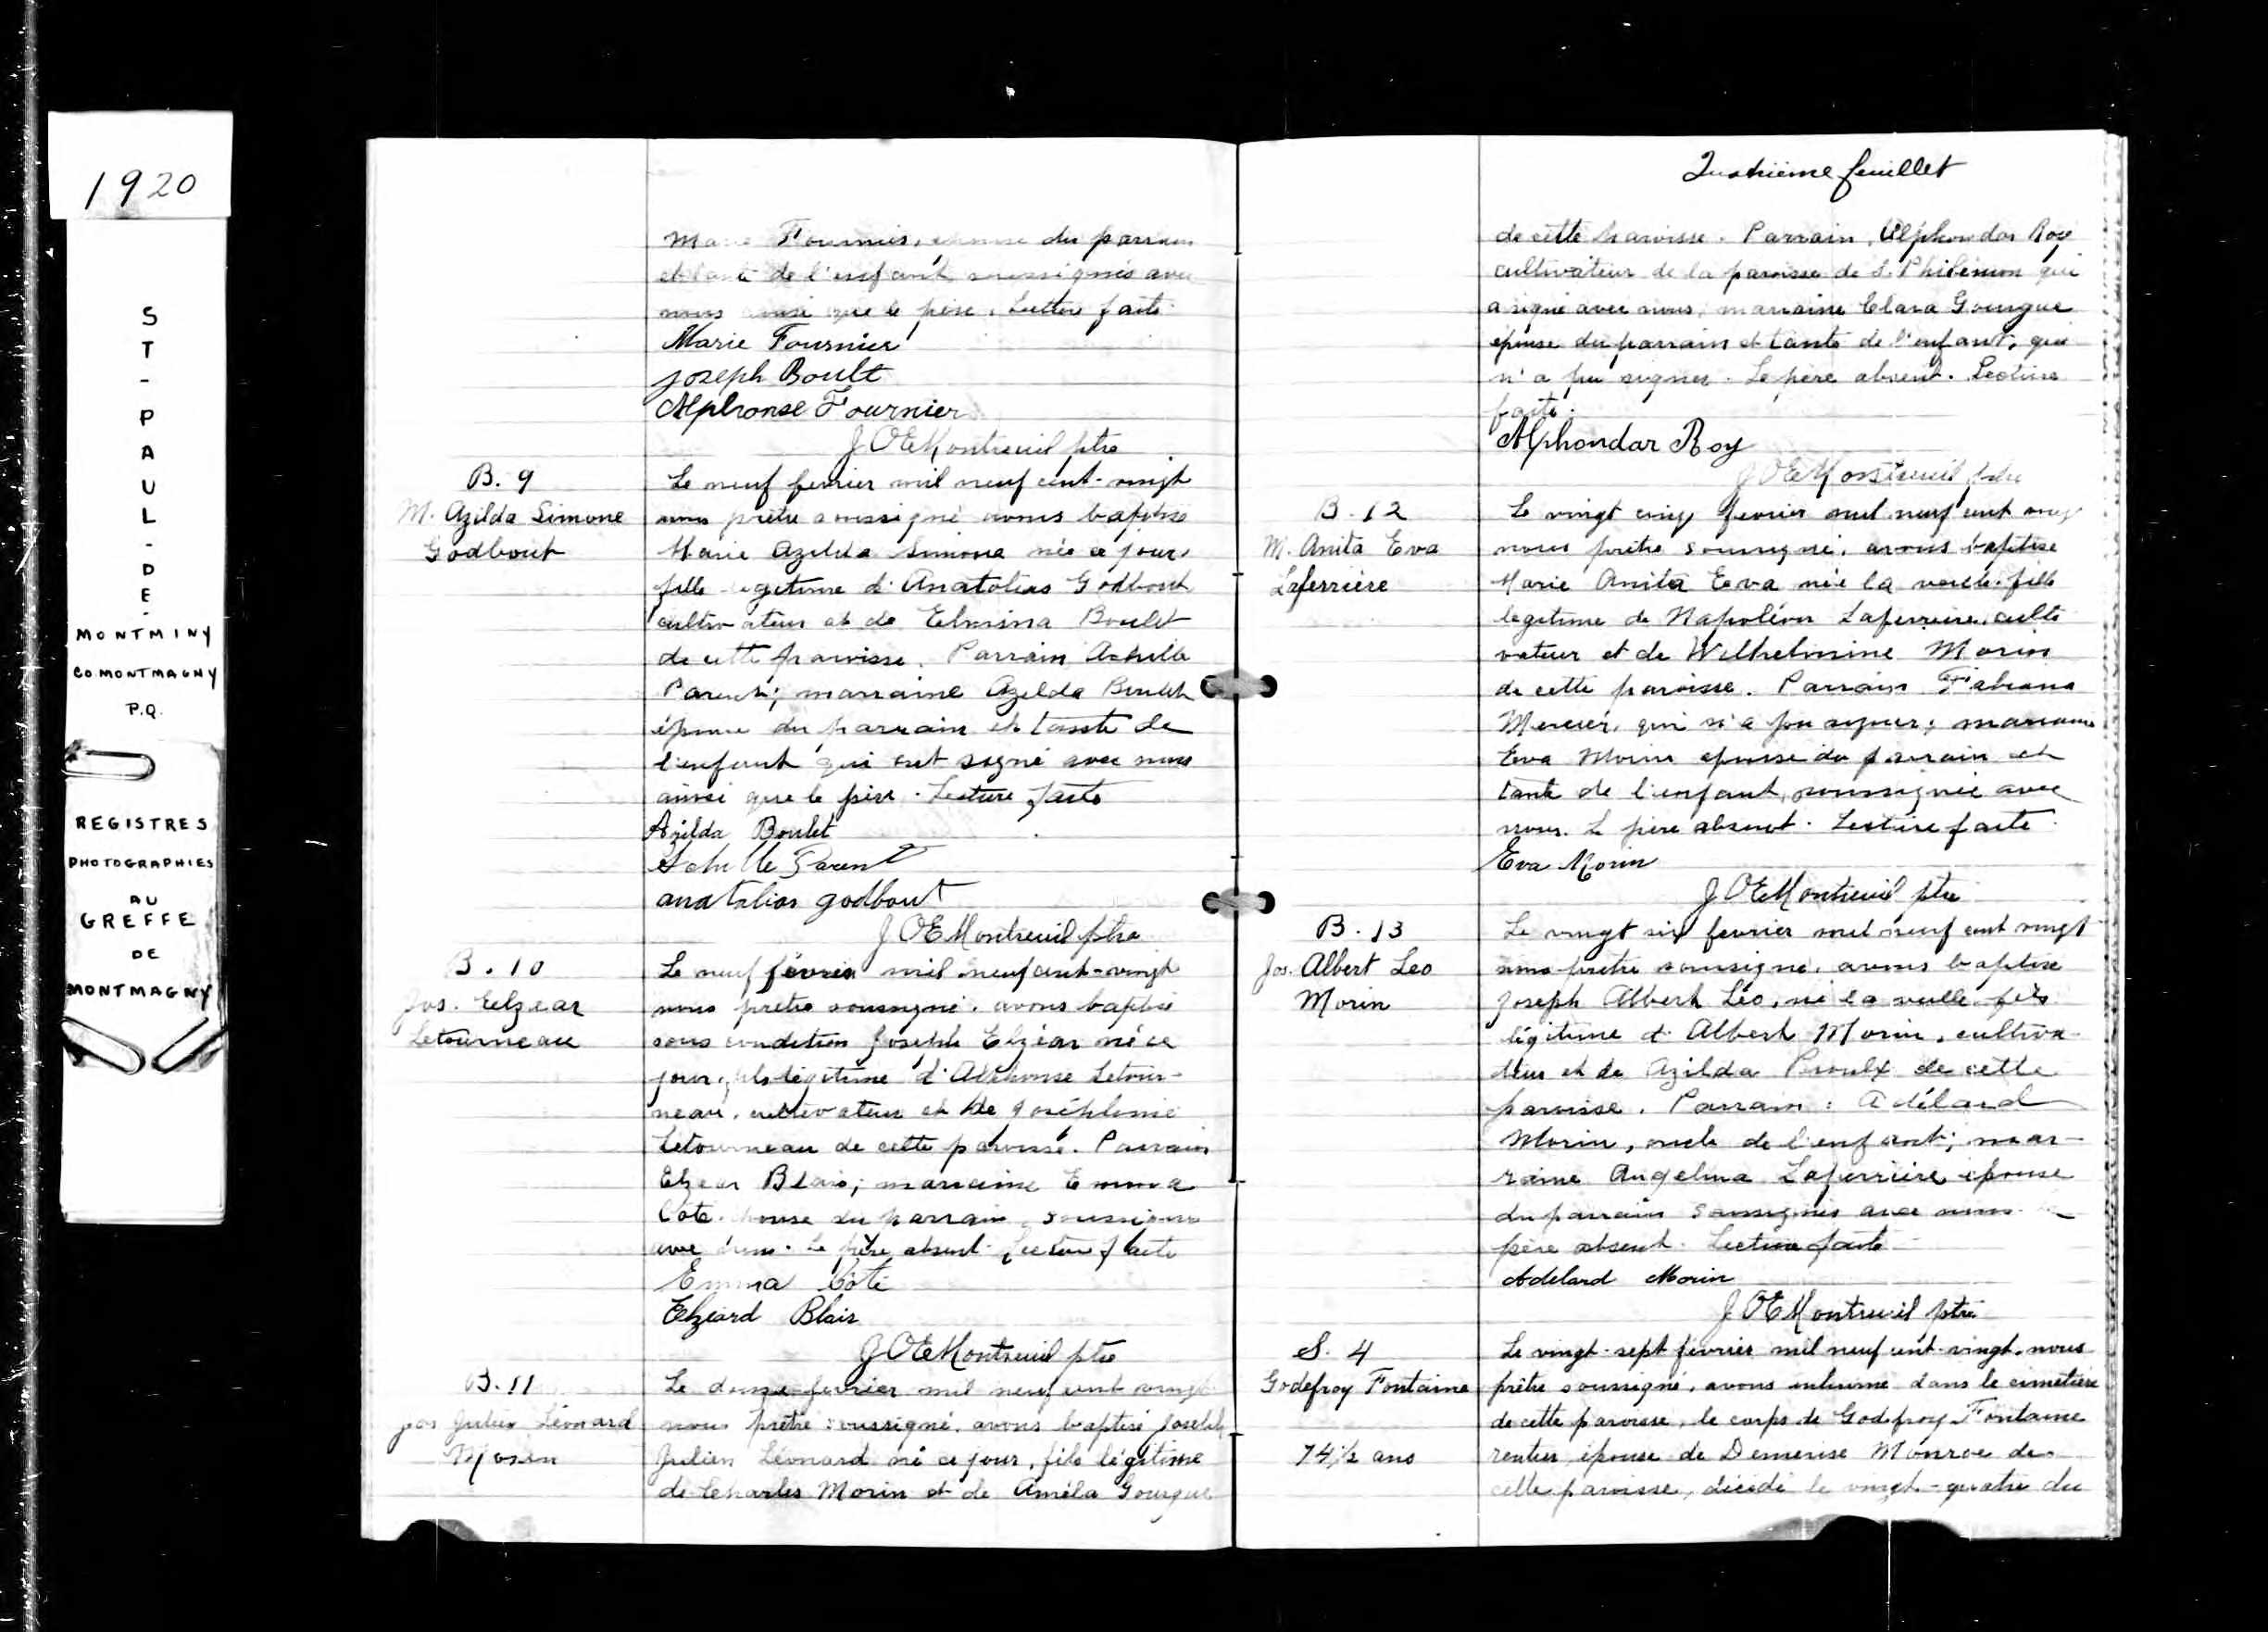 1920
ST-PAUL-DE-
MONTMINY
CO. MONTMAGNY
P.Q.
REGISTRES
PHOTOGRAPHIES
AU
GREFFE
DE
MONTMAGNY
Marie Fournier, épouse du parrain
et tante de l'enfant soussignés avec
nous ainsi que le père. Lecture faite.
Marie Fournier
Joseph Boult
Alphonse Fournier
J O E Montreuil ptre
B. 9
M. Azilda Simone
Godbout
Le neuf fevrier mil neuf cent-vingt
nous prêtre soussigné avons baptisé
Marie Azilda Simone née ce jour,
fille legitime d'Anatolias Godbout
cultivateur et de Elmina Boulet
de cette paroisse. Parrain Achille
Parent; marraine Azilda Boulet
épouse du parrain et tante de
l'enfant qui ont signé avec nous
ainsi que le père. Lecture faite
Azilda Boulet
Achille Parent
anatalias godbout
J O E Montreuil ptre
B. 10
Jos. Elzear
Letourneau
Le neuf février mil neuf cent-vingt
nous prêtre soussigné, avons baptisé
sous condition Joseph Elzéar né ce
jour, fils légitime d'Alphonse Letour-
neau, cultivateur et de Joséphine
Letourneau de cette paroisse. Parrain
Elzear Blais; marraine Emma
Coté, épouse du parrain, soussignés
avec nous. Le père absent. Lecture faite
Emma Côté
Elzéard Blais
J O E Montreuil ptre
B. 11
Jos Julien Léonard
Morin
Le douze fevrier mil neuf cent vingt
nous prêtre soussigné, avons baptisé Joseph
Julien Léonard né ce jour, fils légitime
de Charles Morin et de Améla Gourgue
feuillet
de cette paroisse. Parrain, Alphondar Roy
cultivateur de la paroisse de S. Philémon qui
a signé avec nous; marraine Clara Gourgue
épouse du parrain et tante de l'enfant, qui
n'a pu signer. Le père absent. Lecture
faite.
Alphondar Roy
J O E Montreuil ptre
B. 12
M. Anita Eva
Laferrière
Le vingt cinq fevrier mil neuf cent vingt
nous prêtre soussigné, avons baptisé
Marie Anita Eva née la veille, fille
legitime de Napoléon Laferrière, culti
vateur et de Wilhelmine Morin
de cette paroisse. Parrain
Mercier, qui n'a pu signer; marraine
Eva Morin epouse du parrain et
tante de l'enfant, soussignée avec
nous. Le père absent. Lecture faite.
Eva Morin
J O E Montreuil ptre
B. 13
Jos. Albert Leo
Morin
Le vingt six fevrier mil neuf cent vingt
nous prêtre soussigné, avons baptisé
Joseph Albert Léo, né la veille, fils
légitime d'Albert Morin, cultiva-
teur et de Azilda Proulx de cette
paroisse. Parrain: Adélard
Morin, oncle de l'enfant; mar-
raine Angelina Laferrière, épouse
du parrain soussignés avec nous.
père absent. Lecture faite
Adelard Morin
J O E Montreuil ptre
S. 4
Godefroy Fontaine
74½ ans
Le vingt-sept février mil neuf cent-vingt, nous
prêtre soussigné, avons inhumé dans le cimetière
de cette paroisse, le corps de Godefroy Fontaine
rentier épouse de Demerise Monroe de
cette paroisse, décédé le vingt-quatre du